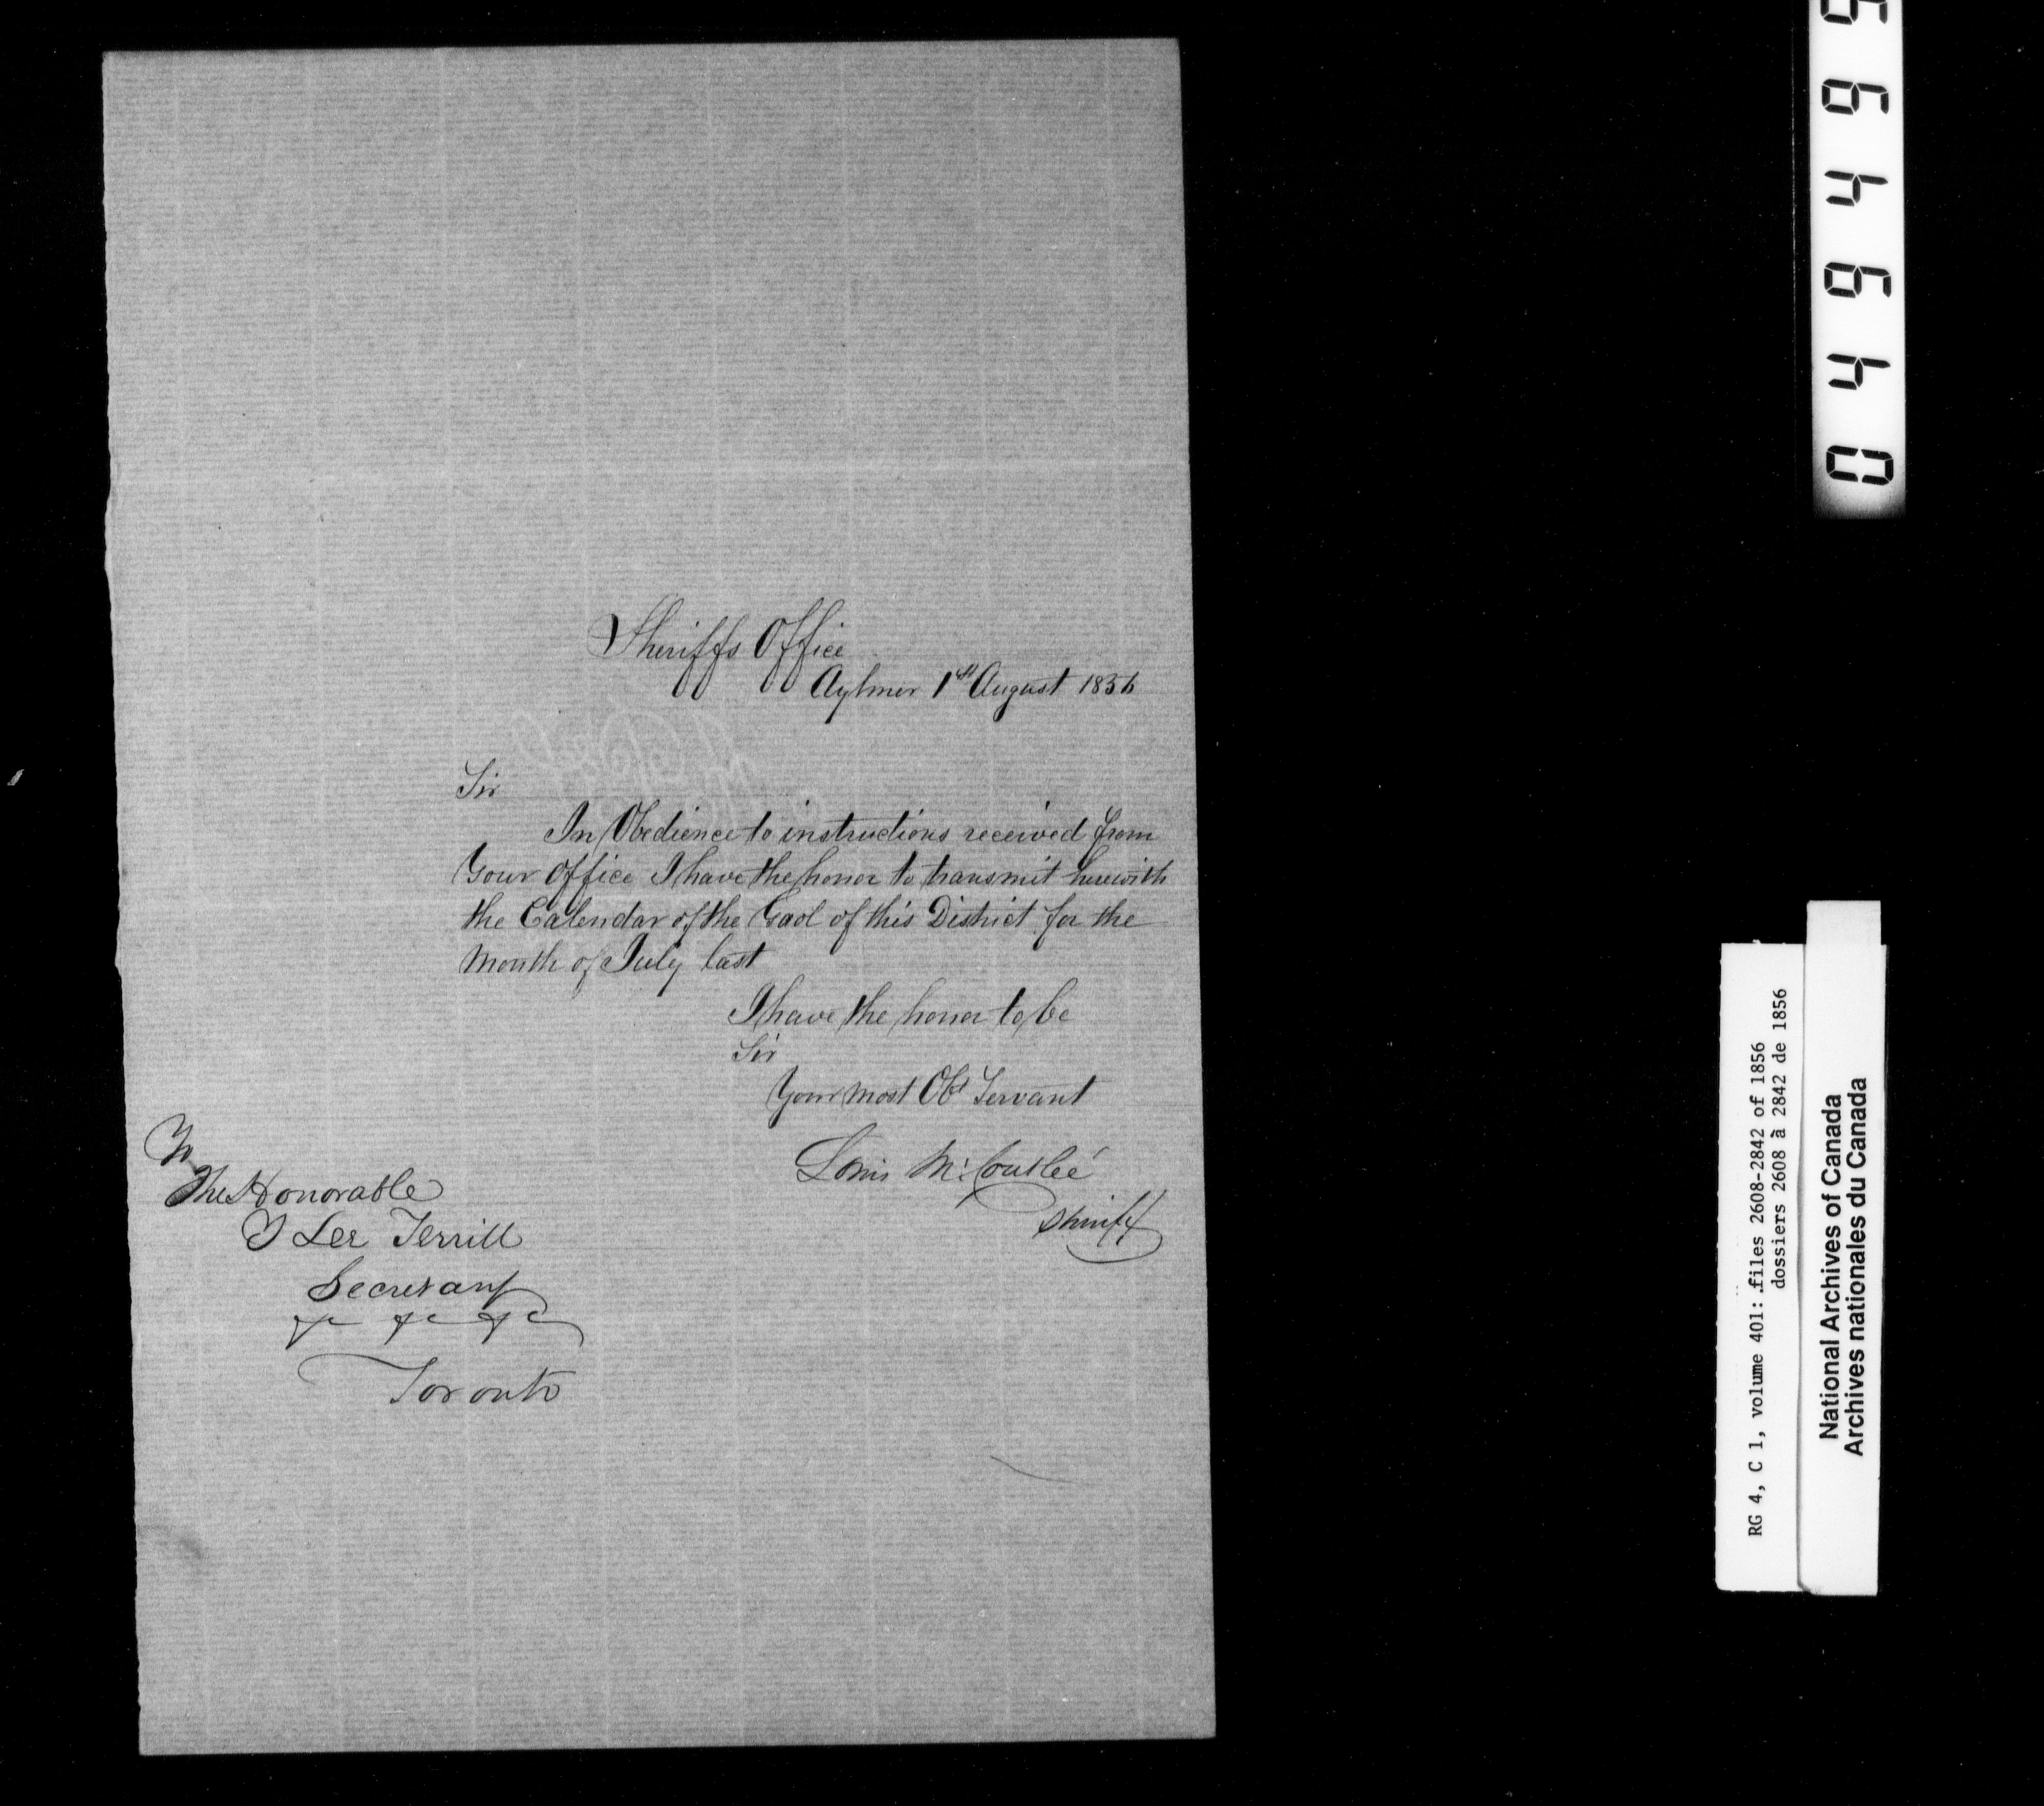 Sheriffs Office
Aylmer 1st August 1856
Sir
In Obedience to instructions received from
Your Office I have the honor to transmit herewith
the Calendar of the Gaol of this District for the
Month of July last
I have the honor to be
Sir
Your most Obt Servant
Louis M: Coutlée
Sheriff
To
The Honorable
T Lee Terrill
Secretary
&c &c &c
Toronto
RG 4, C 1, volume 401: files 2608-2842 of 1856
dossiers 2608 à 2842 de 1856
National Archives of Canada
Archives nationales du Canada